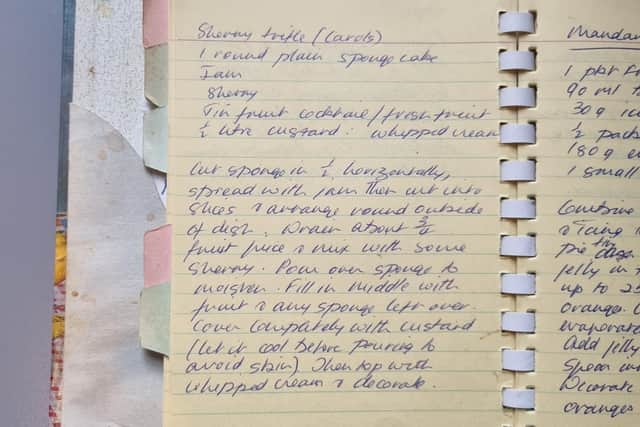 Sherry trifle (Carols)
1 round plain sponge cake
Jam
Sherry
Tin fruit cocktail / fresh fruit
½ litre custard : whipped cream
Cut sponge in ½, horizontally,
spread with jam then cut into
slices & arrange round outside
of dish. Drain about ¾
fruit juice & mix with some
sherry. Pour over sponge to
moisten. Fill in middle with
fruit & any sponge left over.
Cover completely with custard
(let it cool before pouring to
avoid skin) Then top with
whipped cream & decorate.
Mandar
1 pkt
90 ml
30g
½ pack
180g
1 small
Combine
pie
jelly in
up to 25
oranges.
evaporate
Add jelly
Decorate
oranges